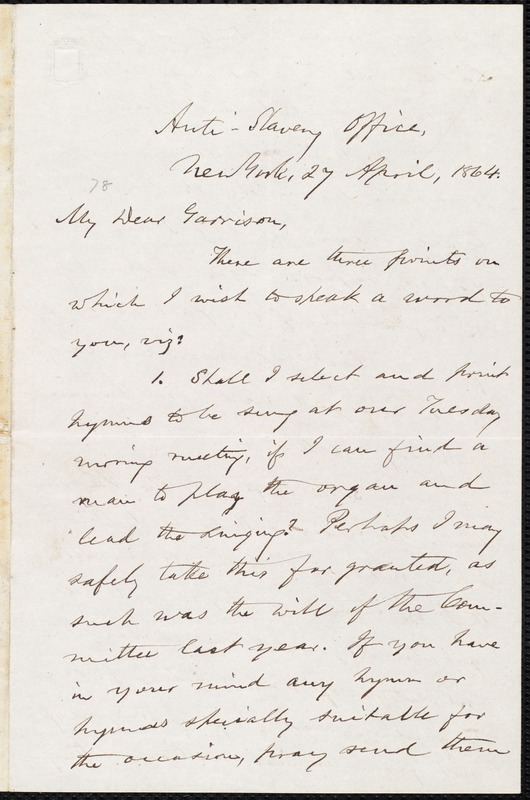 Anti-Slavery Office,
New York, 27 April, 1864.
78
My Dear Garrison,
There are three points on
which I wish to speak a word to
you, viz:
1. Shall I select and print
hymns to be sung at our Tuesday
morning meeting, if I can find a
man to play the organ and
lead the singing? Perhaps I may
safely take this for granted, as
such was the will of the Com-
mittee last year. If you have
in your mind any hymn or
hymns specially suitable for
the occasion, pray send them